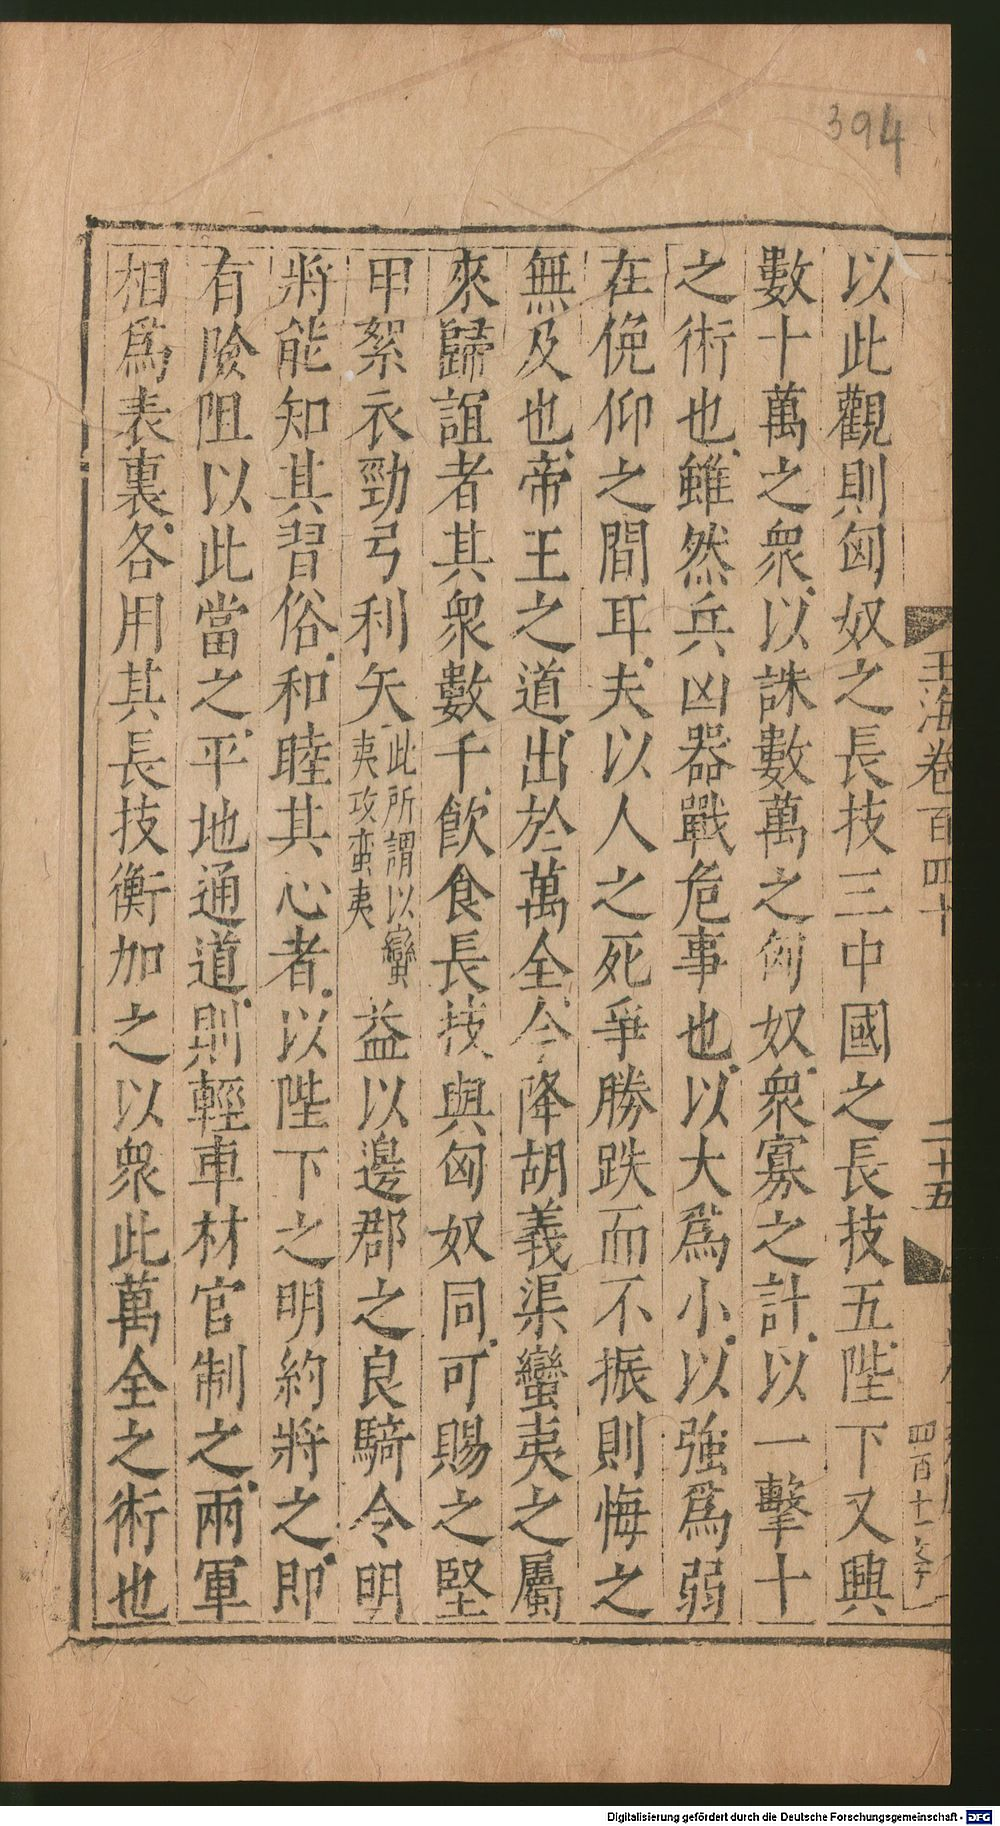 394
玉海卷百四十
二十五
四百十一
以此觀則匈奴之長技三中國之長技五陛下又興
數十萬之衆以誅數萬之匈奴衆寡之計以一擊十
之術也雖然兵凶器戰危事也以大爲小以強爲弱
在俛仰之間耳夫以人之死爭勝跌而不振則悔之
無及也帝王之道出於萬全今降胡義渠蠻夷之屬
來歸誼者其衆數千飮食長技與匈奴同可賜之堅
甲絮衣勁弓利矢此所謂以蠻夷攻蛮夷益以邊郡之良騎令明
將能知其習俗和睦其心者以陛下之明約將之即
有險阻以此當之平地通道則輕車材官制之兩軍
相爲表裏各用其長技衡加之以衆此萬全之術也
Digitalisierung gefördert durch die Deutsche Forschungsgemeinschaft - DFG